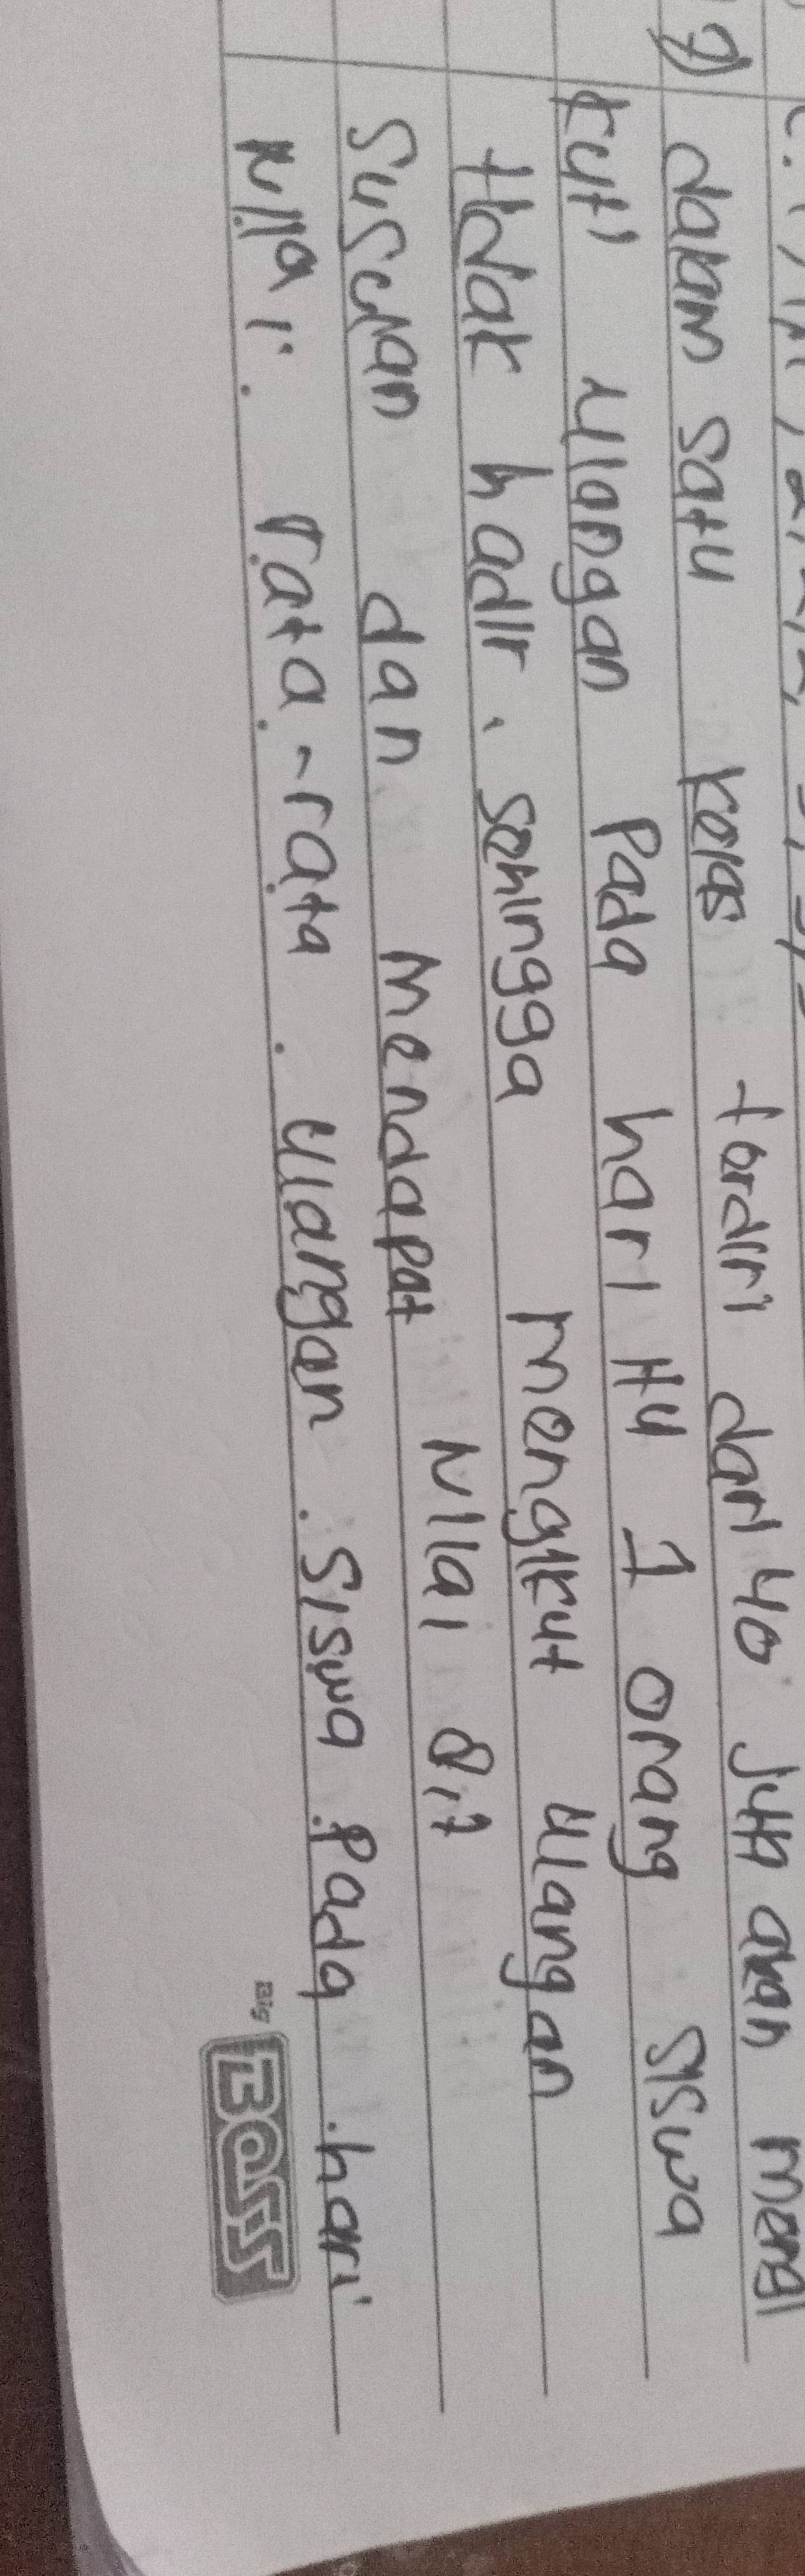 7) dalam satu kelas terdiri dari 40 jutt akan mengi
kuti ulangan Pada hari itu 1 orang siswa
tidak hadir. sehingga mengikut ulangan
susulan dan mendapat Nilai 8,7
Nilai. rata-rata. ulangan. siswa Pada hari
Big Boss